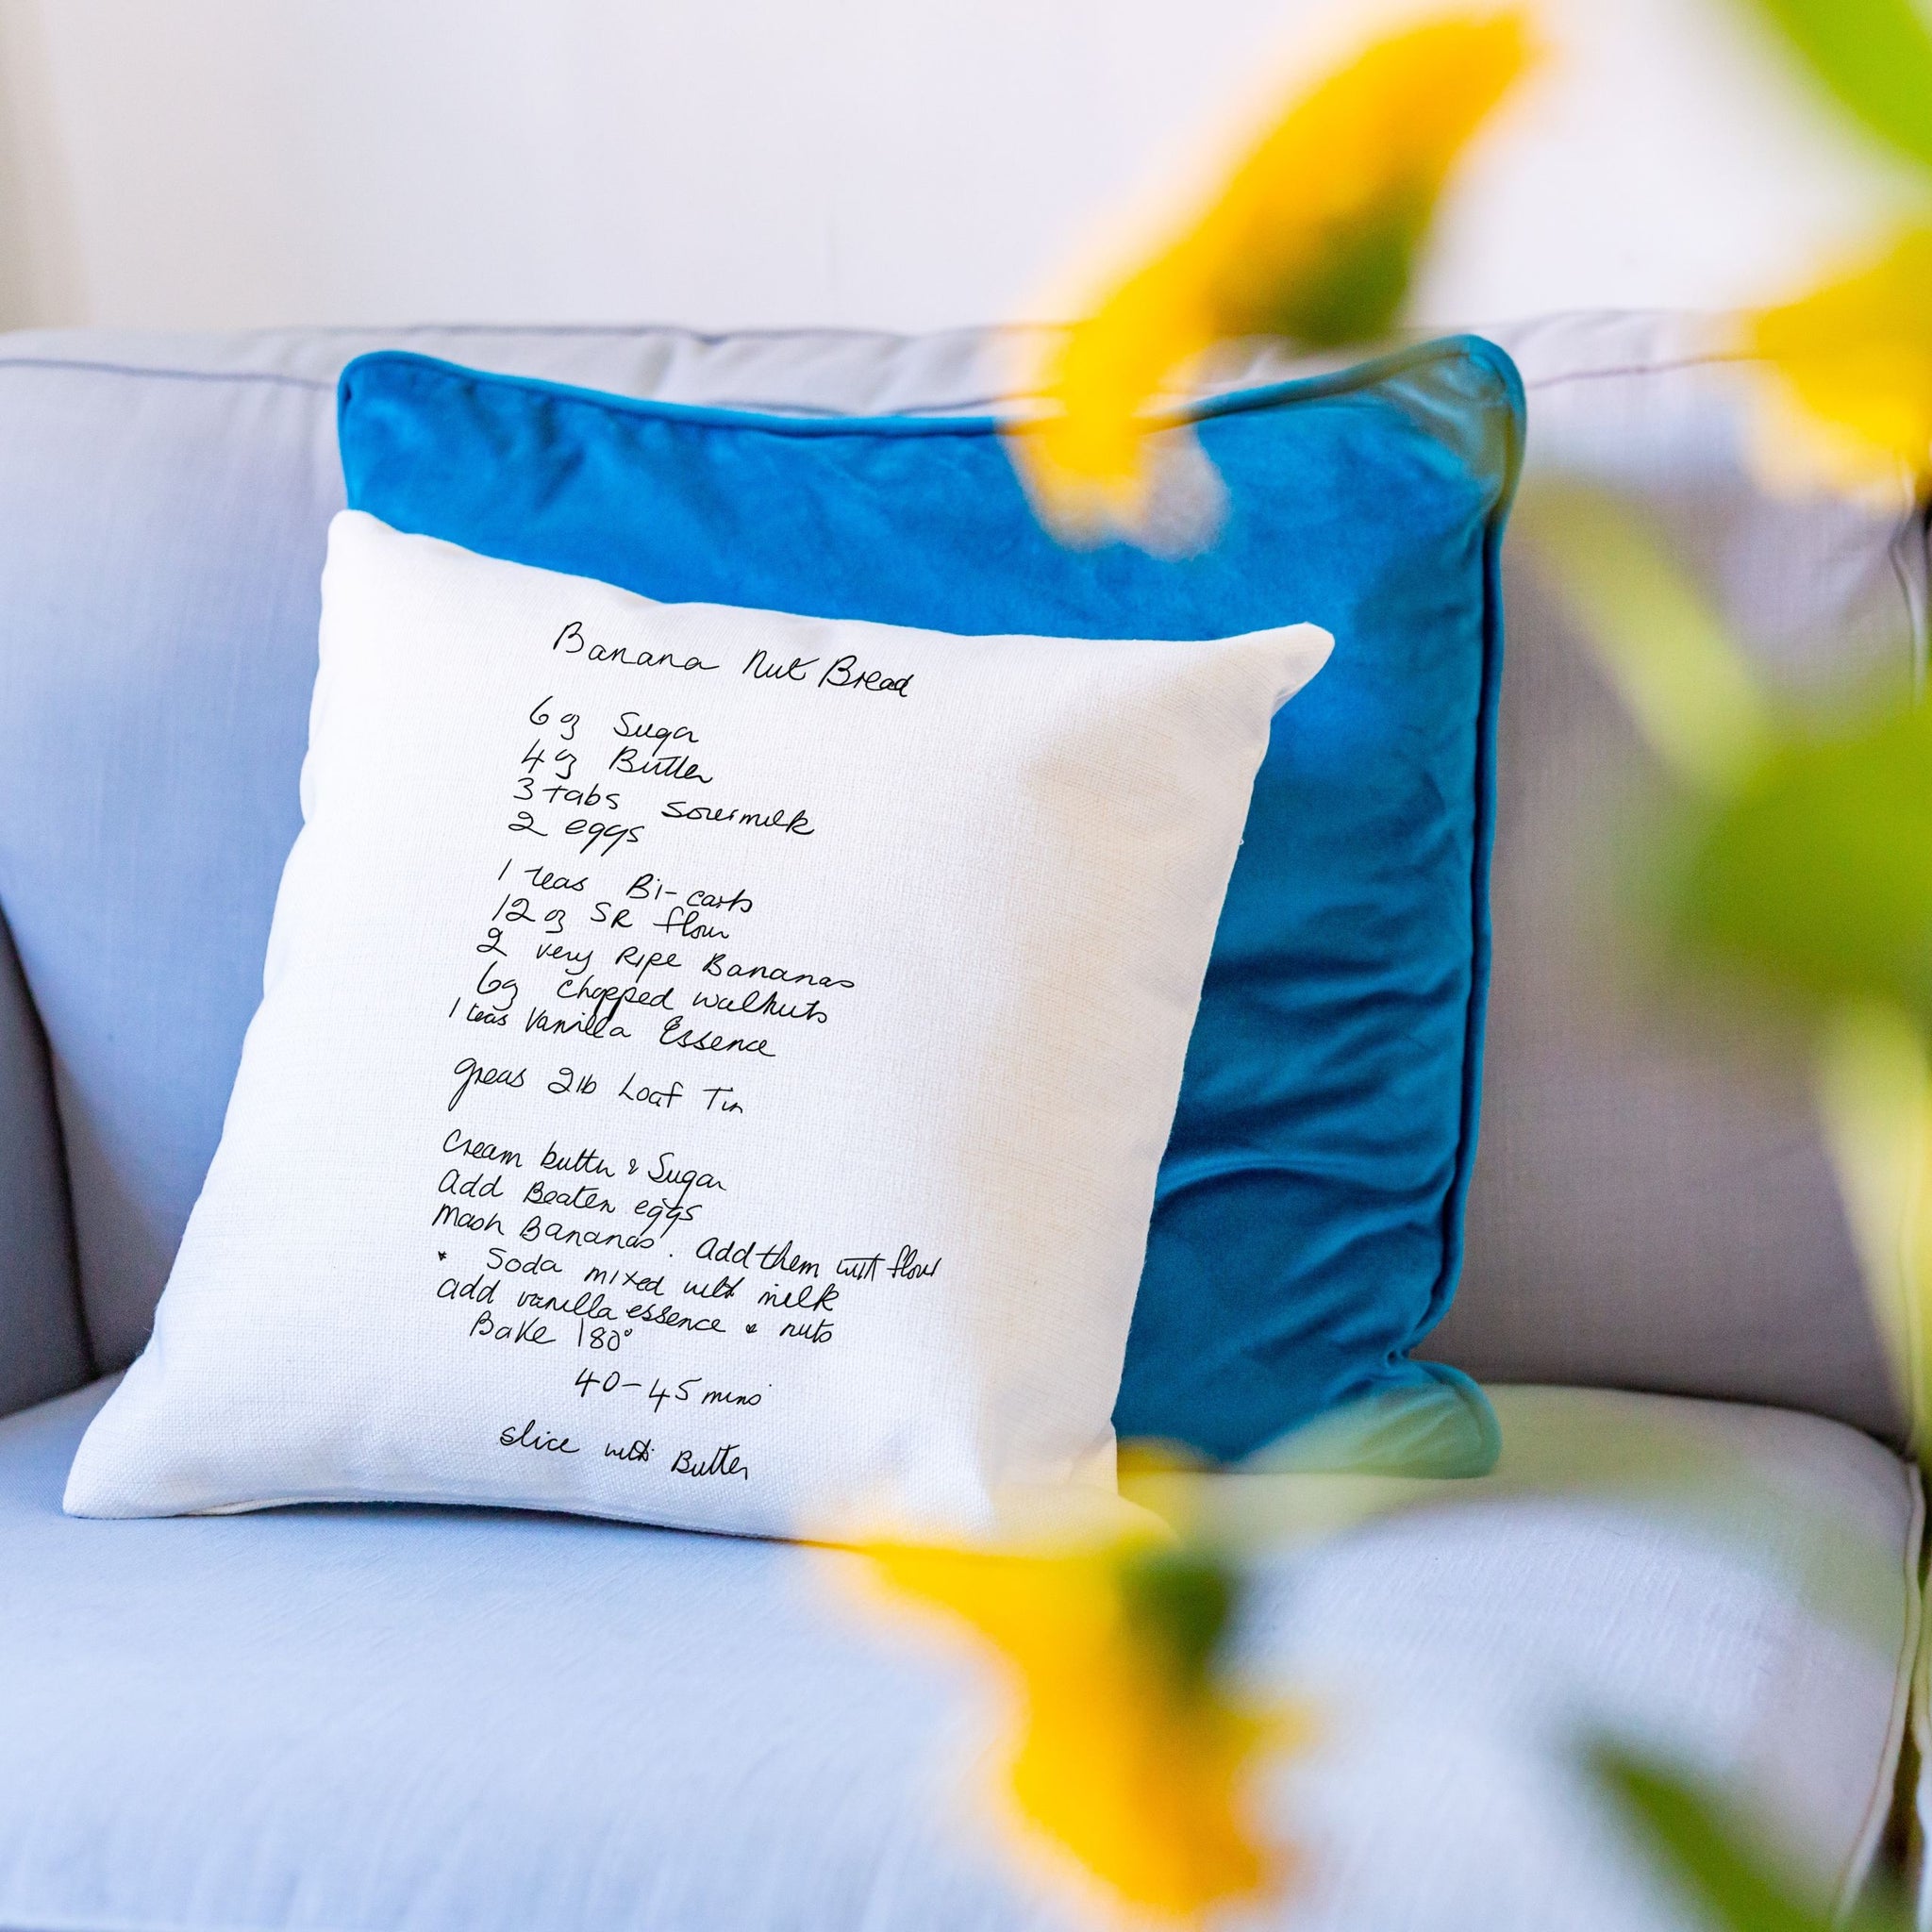 Banana Nut Bread
6 oz Sugar
4 oz Butter
3 tabs Sourmilk
2 eggs
1 teas Bi-carb
12 oz SR flour
2 very Ripe Bananas
6oz chopped walnuts
1 teas Vanilla Essence
greas 2lb Loaf Tin
Cream butter & Sugar
Add Beaten eggs
Mash Bananas. Add them with flour
+ Soda mixed with milk
add vanilla essence & nuts
Bake 180°
40-45 mins
slice with Butter